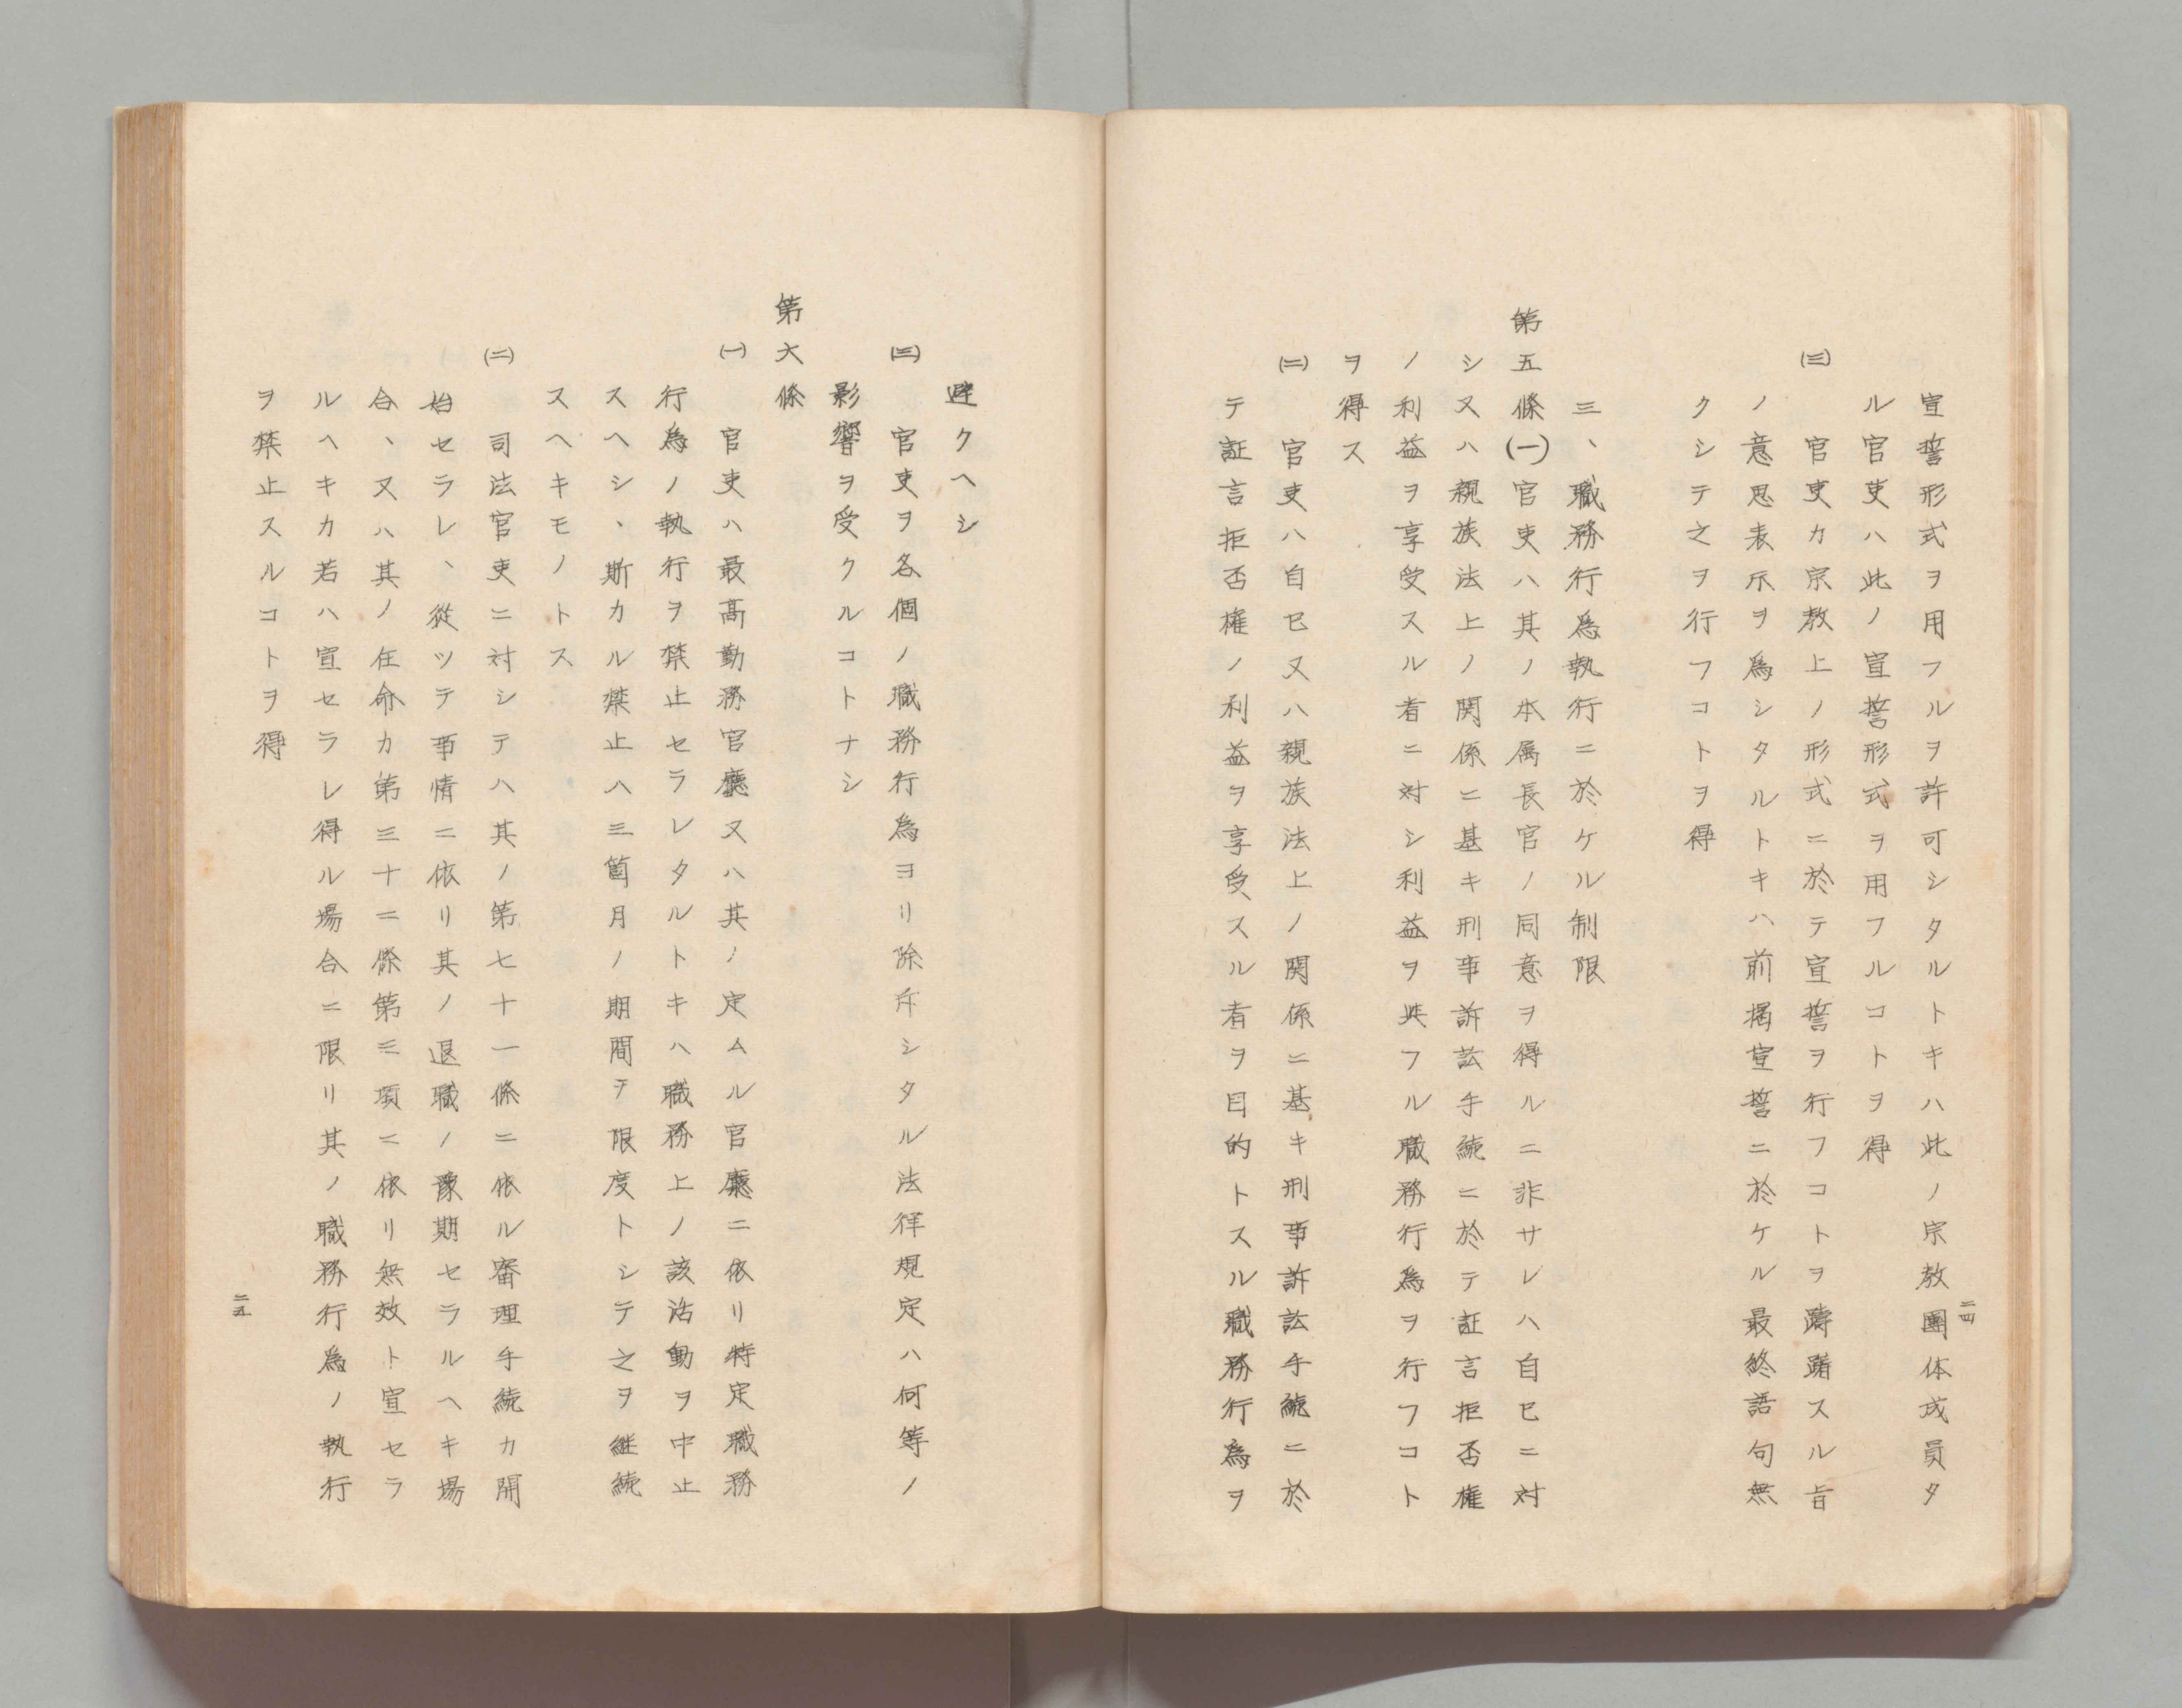 宣誓形式ヲ用フルヲ許可シタルトキハ此ノ宗教團体成員タ
ル官吏ハ此ノ宣誓形式ヲ用フルコトヲ得
(三) 官吏カ宗教上ノ形式ニ於テ宣誓ヲ行フコトヲ躊躇スル旨
ノ意思表示ヲ為シタルトキハ前掲宣誓ニ於ケル最終語句無
クシテ之ヲ行フコトヲ得
三、職務行為執行ニ於ケル制限
第五條(一)官吏ハ其ノ本属長官ノ同意ヲ得ルニ非サレハ自己ニ対
シ又ハ親族法上ノ関係ニ基キ刑事訴訟手続ニ於テ証言拒否権
ノ利益ヲ享受スル者ニ対シ利益ヲ與フル職務行為ヲ行フコト
ヲ得ス
(二) 官吏ハ自己又ハ親族法上ノ関係ニ基キ刑事訴訟手続ニ於
テ証言拒否権ノ利益ヲ享受スル者ヲ目的トスル職務行為ヲ
二四
避クヘシ
(三) 官吏ヲ各個ノ職務行為ヨリ除斥シタル法律規定ハ何等ノ
影響ヲ受クルコトナシ
第六條
(一) 官吏ハ最高勤務官廳又ハ其ノ定ムル官廳ニ依リ特定職務
行為ノ執行ヲ禁止セラレタルトキハ職務上ノ該活動ヲ中止
スヘシ、斯カル禁止ハ三箇月ノ期間ヲ限度トシテ之ヲ継続
スヘキモノトス
(二) 司法官吏ニ対シテハ其ノ第七十一條ニ依ル審理手続カ開
始セラレ、從ツテ事情ニ依リ其ノ退職ノ豫期セラルヘキ場
合、又ハ其ノ任命カ第三十二條第三項ニ依リ無效ト宣セラ
ルヘキカ若ハ宣セラレ得ル場合ニ限リ其ノ職務行為ノ執行
ヲ禁止スルコトヲ得
二五